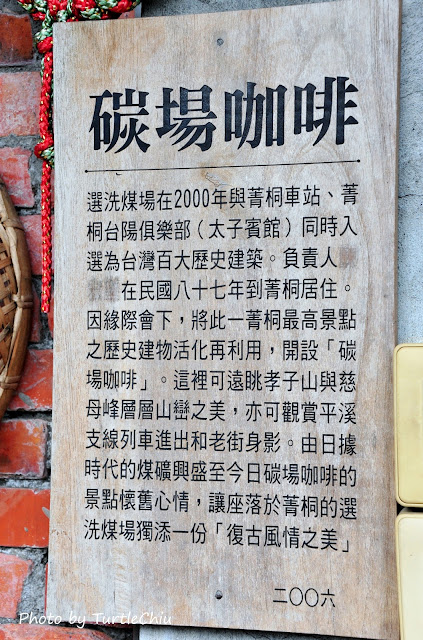 碳場咖啡
選洗煤場在2000年與菁桐車站、菁
桐台陽俱樂部（太子賓館）同時入
選為台灣百大歷史建築。負責人
在民國八十七年到菁桐居住。
因緣際會下，將此一菁桐最高景點
之歷史建物活化再利用，開設「碳
場咖啡」。這裡可遠眺孝子山與慈
母峰層層山巒之美，亦可觀賞平溪
支線列車進出和老街身影。由日據
時代的煤礦興盛至今日碳場咖啡的
景點懷舊心情，讓座落於菁桐的選
洗煤場獨添一份「復古風情之美」
二〇〇六
Photo by TurtleChiu